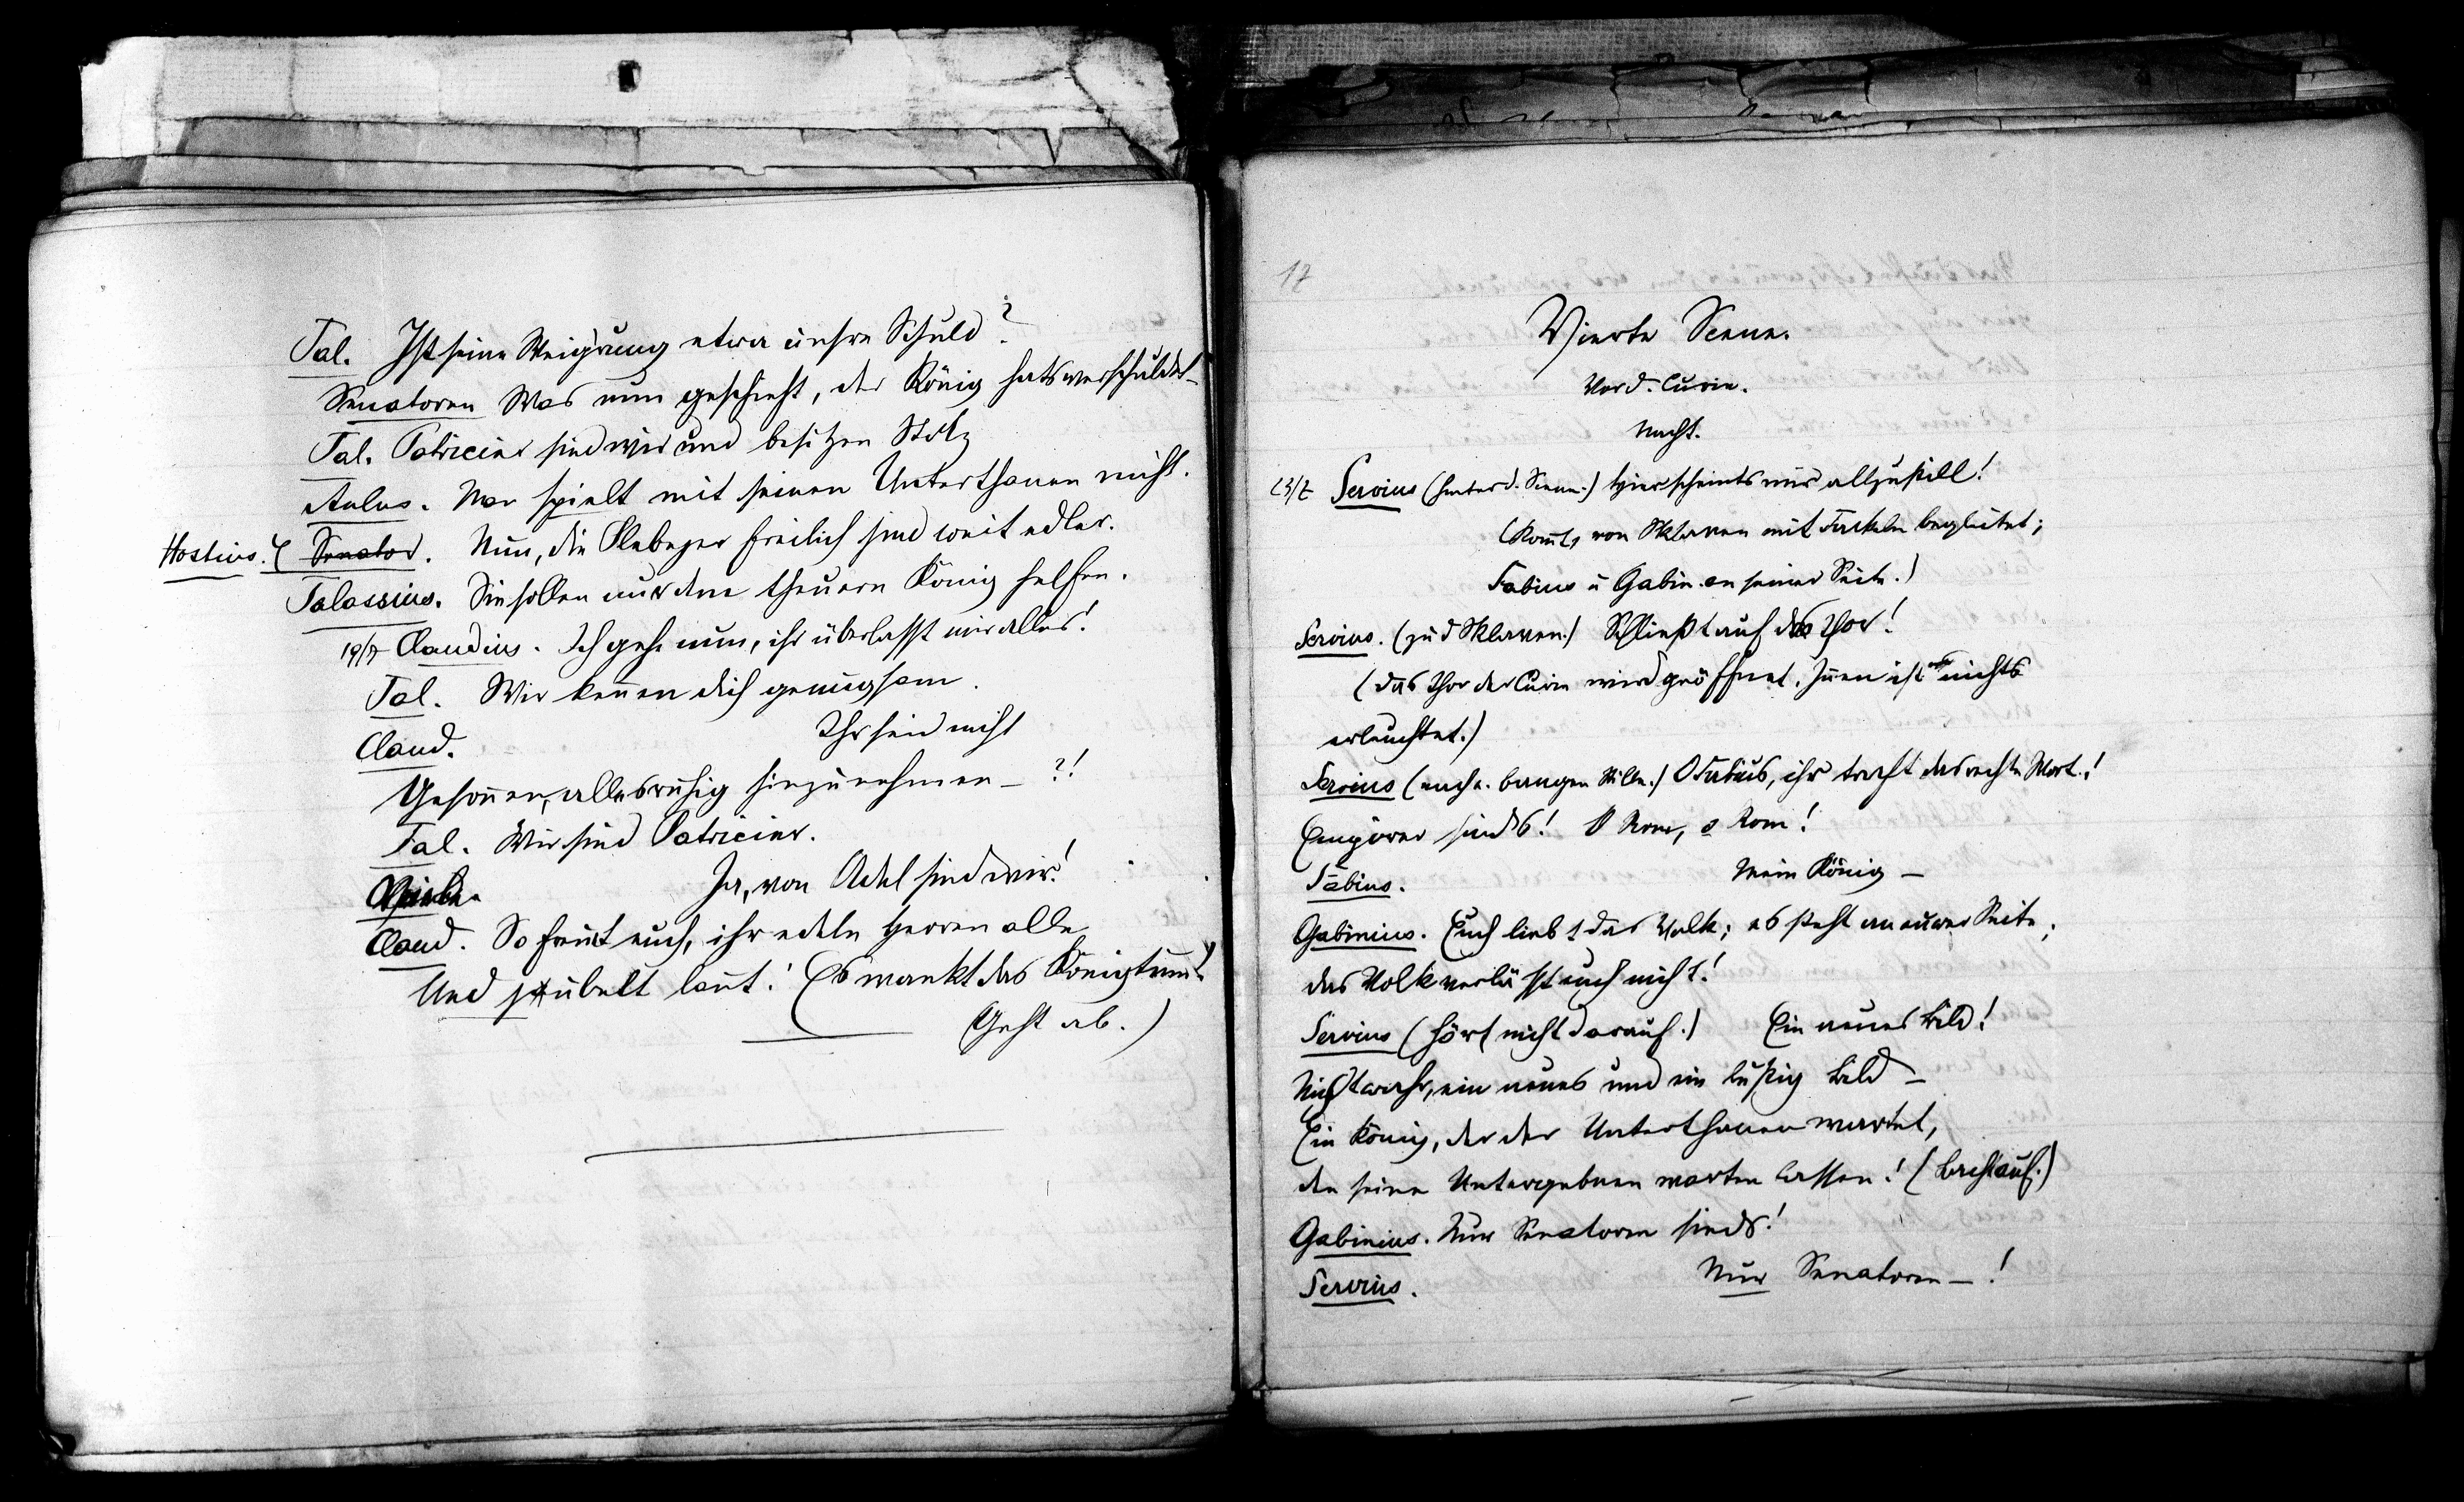 Tal. Ist seine Weigrung etwa unsre Schuld?
Senatoren Was nun geschieht, der König hats verschuldet –
Tal. Patricier sind wir und besitzen Stolz
Aulus. Man spielt mit seinen Unterthanen nicht.
Hostius. Senator. Nun, die Plebejer freilich sind weit edler.
Talassius. Sie sollen nur dem theuern König helfen.
19/7 Claudius. Ich gehe nun, ihr überlasst mir alles!
Tal. Wir kennen dich genugsam.
Claud. Ihr seid nicht
Gesonnen, alles ruhig hinzunehmen – ?!
Tal. Wir sind Patricier.
Ja, von Adel sind wir!
Claud. So freut euch, ihr edeln Herren alle,
Und jubelt laut! Es wankt das Königtum!
(Geht ab.)
17
Vierte Scene.
Vor d. Curie.
Nacht.
23/7 Servius (hinter d. Scene.) Hier scheints mir allzustill!
(Kommt, von Sklaven mit Fackeln begleitet;
Fabius u Gabin. an seiner Seite.)
Servius. (zu d Sklaven.) Schließt auf das Thor!
(Das Thor der Curie wird geöffnet. Innen ist nichts
erleuchtet.)
Servius (nach e. bangen Stille.) O Fabius, ihr traft das rechte Wort!
Empörer sinds! O Rom, o Rom!
Fabius. Mein König –
Gabinius. Euch liebt das Volk; es steht an eurer Seite;
das Volk verlässt euch nicht!
Servius (hört nicht darauf.) Ein neues Bild!
Nicht wahr, ein neues und ein lustig Bild –
Ein König, der der Unterthanen wartet,
den seine Untergebnen warten lassen! (Lacht auf.)
Gabinius. Nur Senatoren sinds!
Servius. Nur Senatoren – !